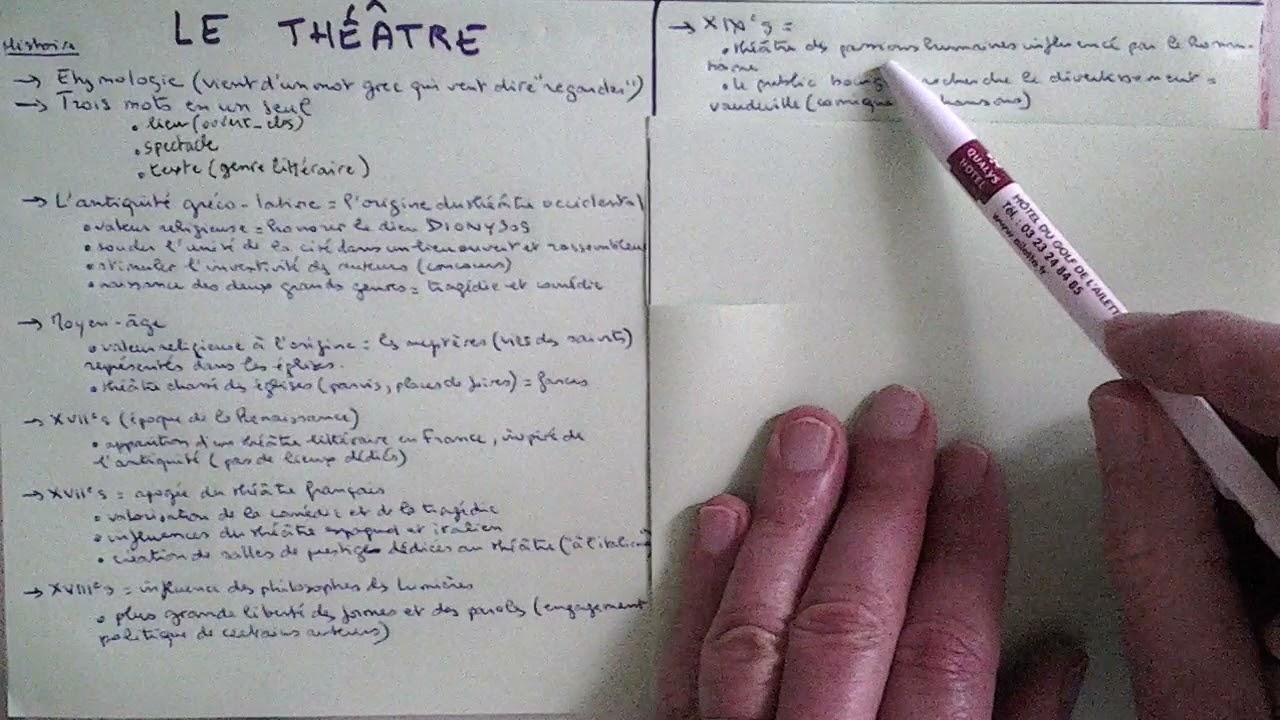 LE THÉÂTRE
Histoire
→ Etymologie (vient d'un mot grec qui veut dire "regarder")
→ Trois mots en un seul
• lieu (ouvert-clos)
• spectacle
• texte (genre littéraire)
→ L'antiquité gréco-latine = l'origine du théâtre occidental
• valeur religieuse = honorer le dieu DIONYSOS
• souder l'unité de la cité dans un lieu ouvert et rassembleur
• stimuler l'inventivité des auteurs (concours)
• naissance des deux grands genres = tragédie et comédie
→ Moyen-âge
• valeur religieuse à l'origine = les mystères (vies des saints)
représentés dans les églises.
• théâtre chassé des églises (parvis, places de foires) = farces
(époque de la Renaissance)
• apparition d'un théâtre littéraire en France, inspiré de
l'antiquité (pas de lieux dédiés)
→ XVIIe s = apogée du théâtre français
• valorisation de la comédie et de la tragédie
• influences du théâtre espagnol et italien
• création de salles de prestige dédiées au théâtre ("à l'italienne")
→ XVIIIe s = influence des philosophes des lumières
• plus grande liberté des formes et des paroles (engagement
politique de certains auteurs)
→ XIXe s =
• théâtre des passions humaines influencé par le Roman-
tisme
• le public recherche le divertissement =
vaudeville (comique chansons)
QUALYS
HOTEL
HÔTEL DU GOLF DE L'AILETTE
Tél : 03 23 24 84 85